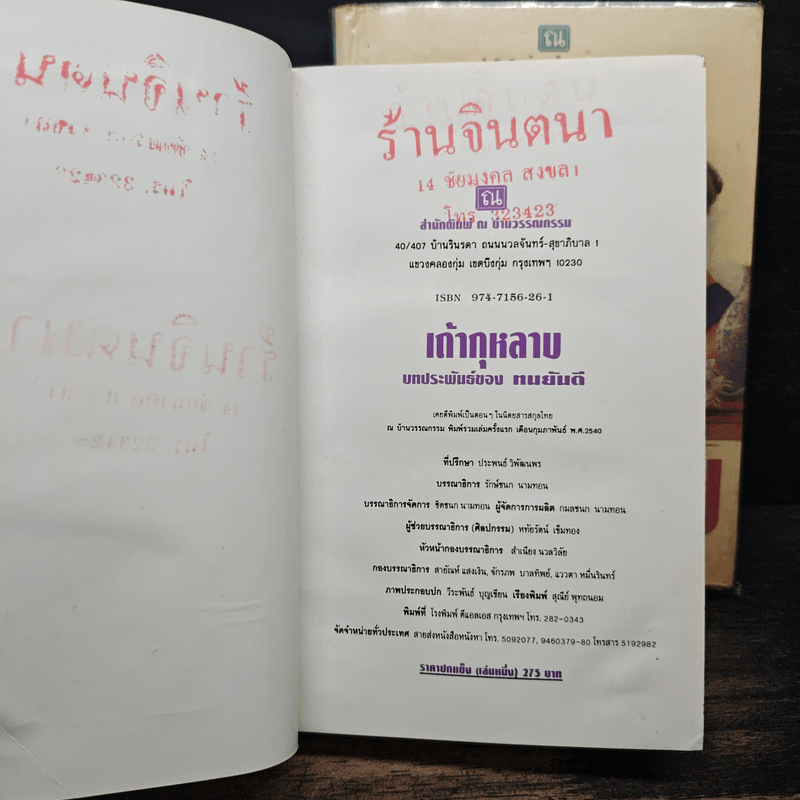 ร้านจินตนา
14 ชัยมงคล สงขลา
ณ
โทร 323423
สำนักพิมพ์ ณ บ้านวรรณกรรม
40/407 บ้านรินรดา ถนนนวลจันทร์-สุขาภิบาล 1
แขวงคลองกุ่ม เขตบึงกุ่ม กรุงเทพฯ 10230
ISBN 974-7156-26-1
เถ้ากุหลาบ
บทประพันธ์ของ ทมยันตี
เคยตีพิมพ์เป็นตอนๆ ในนิตยสารสกุลไทย
ณ บ้านวรรณกรรม พิมพ์รวมเล่มครั้งแรก เดือนกุมภาพันธ์ พ.ศ.2540
ที่ปรึกษา ประพนธ์ วิพัฒนพร
บรรณาธิการ รักษ์ชนก นามทอน
บรรณาธิการจัดการ ชิดชนก นามทอน ผู้จัดการการผลิต กมลชนก นามทอน
ผู้ช่วยบรรณาธิการ (ศิลปกรรม) หทัยรัตน์ เข็มทอง
หัวหน้ากองบรรณาธิการ สำเนียง นวลวิลัย
กองบรรณาธิการ สายัณห์ แสงเงิน, จักรภพ บาลทิพย์, แววตา หมื่นรินทร์
ภาพประกอบปก วีระพันธ์ บุญเขียน เรียงพิมพ์ สุณีย์ พุทถนอม
พิมพ์ที่ โรงพิมพ์ ดีแอลเอส กรุงเทพฯ โทร. 282-0343
จัดจำหน่ายทั่วประเทศ สายส่งหนังสือหนังหา โทร. 5092077, 9460379-80 โทรสาร 5192982
ราคาปกแข็ง (เล่มหนึ่ง) 275 บาท
ณ